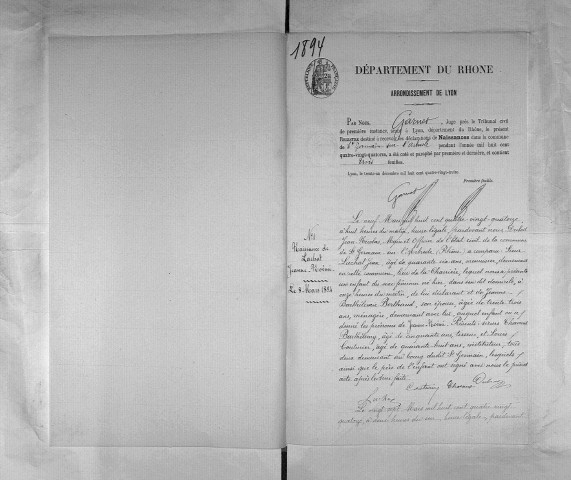 1894
DÉPARTEMENT DU RHONE
ARRONDISSEMENT DE LYON
PAR NOUS, Garnet, Juge près le Tribunal civil
de première instance, séant à Lyon, département du Rhône, le présent
REGISTRE destiné à recevoir les déclarations de Naissances dans la commune
de St Germain sur l'Arbresle pendant l'année mil huit cent
quatre-vingt-quatorze, a été coté et paraphé par première et dernière, et contient
trois feuilles.
Lyon, le trente-un décembre mil huit cent quatre-vingt-treize.
Première feuille.
Garnet
No 1
Naissance de
Lachat
Jeanne-Noémi
Le 9 Mars 1894
Le neuf Mars mil huit cent quatre vingt quatorze
à huit heures du matin, heure légale pardevant nous Dubost
Jean Nicolas, Maire et Officier de l'Etat civil de la commune
de St Germain sur l'Arbresle (Rhône) a comparu
Lachat Jean, âgé de quarante six ans, demeurant
en cette commune, lieu de la Charrière, lequel nous a présenté
un enfant du sexe féminin né hier, dans son dit domicile, à
onze heures du matin, de lui déclarant et de Jeanne
Barthélemie Berthaud, son épouse, âgée de trente trois
ans, ménagère, demeurant avec lui, auquel enfant on a
donné les prénoms de Jeanne Noémi. Présents: sieurs Thomas
Barthélemy, âgé de cinquante ans, et Louis
Couturier, âgé de quarante huit ans, instituteur, tous
deux demeurant au bourg dudit St Germain, lesquels
ainsi que le père de l'enfant ont signé avec nous le présent
acte après lecture faite.
Couturier Thomas Dubost
Lachat
Le vingt sept Mars mil huit cent quatre vingt
quatorze, à heures du soir, heure légale, pardevant